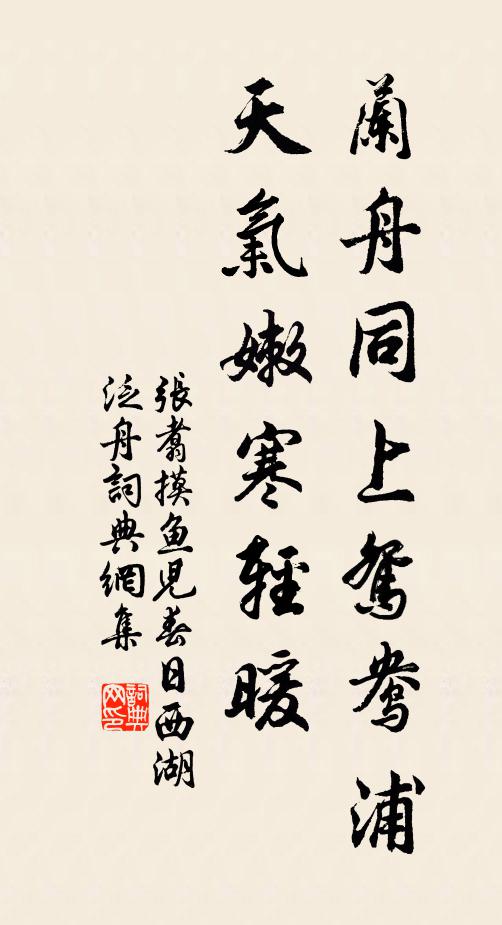 蘭舟同上鴛鴦浦
天氣嫩寒輕暖
張翥摸魚児春日西湖
泛舟詞典網集
詞典
网印